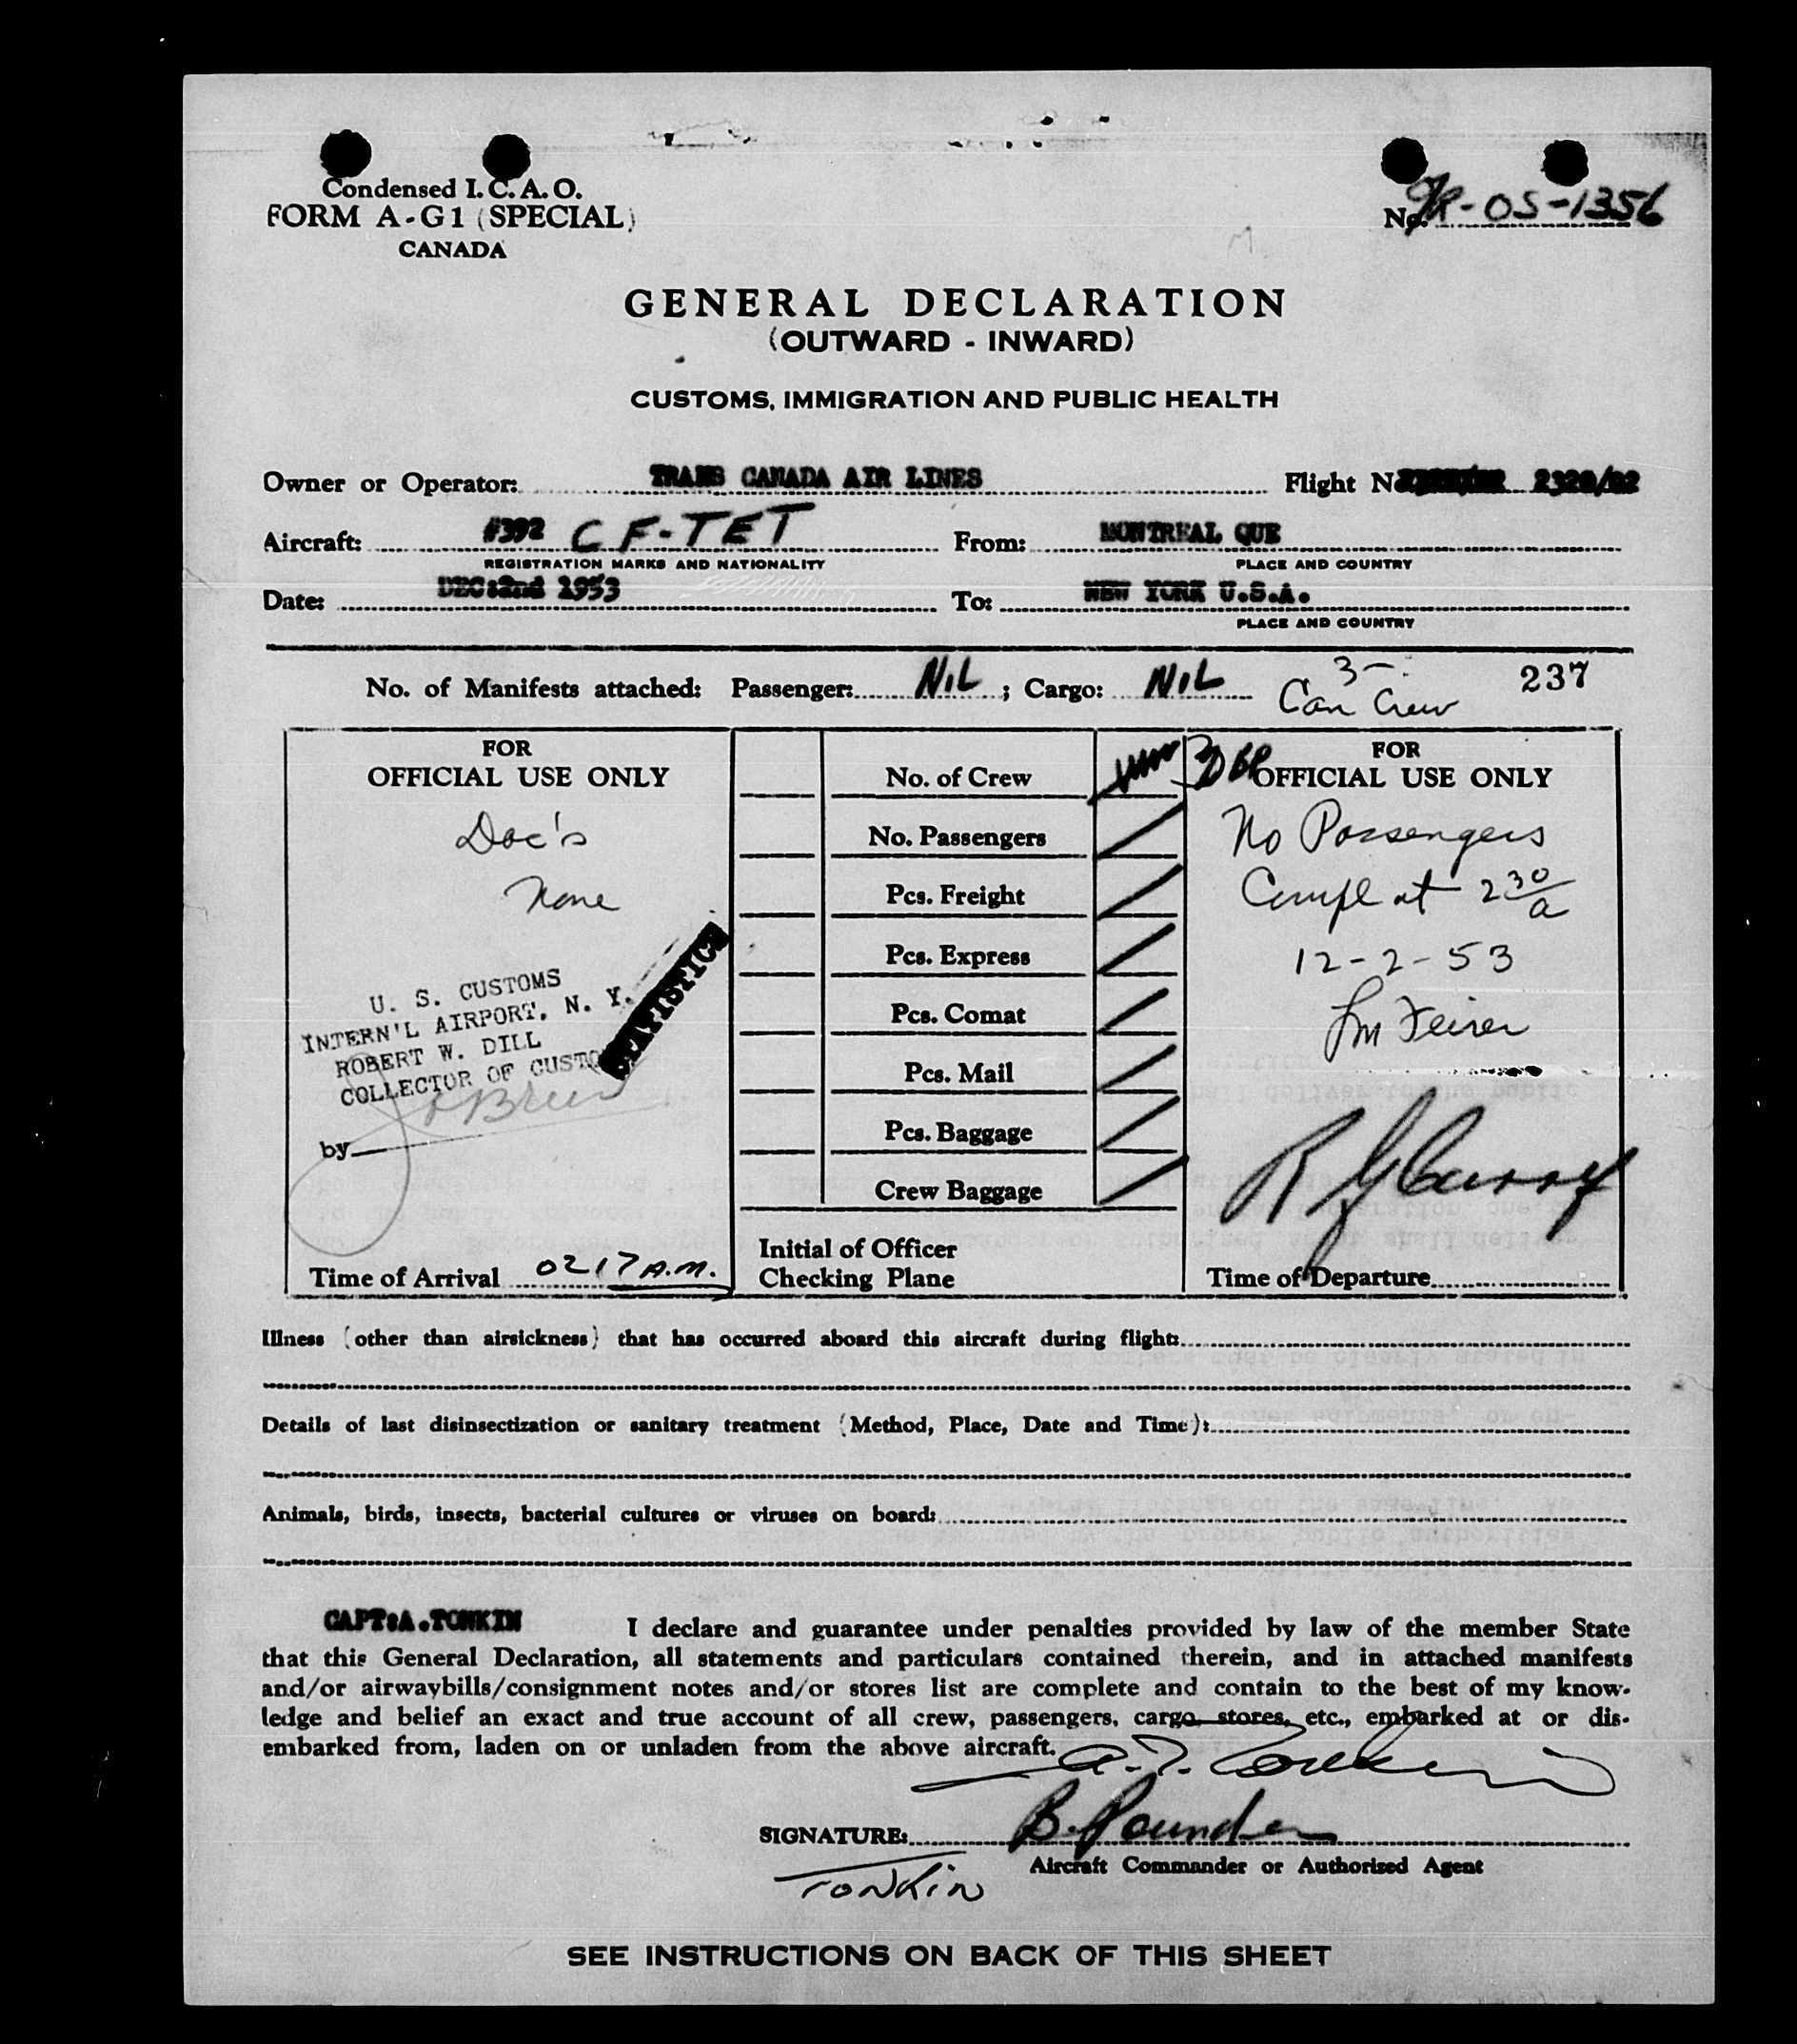 Condensed I.C.A.O.
FORM A-G1 (SPECIAL)
CANADA
No. -OS-1356
GENERAL DECLARATION
(OUTWARD - INWARD)
CUSTOMS, IMMIGRATION AND PUBLIC HEALTH
Owner or Operator: TRANS CANADA AIR LINES Flight No 2320/02
Aircraft: #392 CF-TET From: MONTREAL QUE
REGISTRATION MARKS AND NATIONALITY PLACE AND COUNTRY
Date: DEC:2nd 1953 To: NEW YORK U.S.A.
PLACE AND COUNTRY
No. of Manifests attached: Passenger: NIL ; Cargo: NIL 3- 237
Can Crew
FOR
OFFICIAL USE ONLY
Doc's
None
U. S. CUSTOMS
INTERN'L AIRPORT, N. Y.
ROBERT W. DILL
COLLECTOR OF CUSTO
STATISTICS
by
Time of Arrival 0217 A.M.
No. of Crew 3
No. Passengers
Pcs. Freight
Pcs. Express
Pcs. Comat
Pcs. Mail
Pcs. Baggage
Crew Baggage
Initial of Officer
Checking Plane
FOR
OFFICIAL USE ONLY
No Passengers
Compl at 2 30/a
12-2-53
Time of Departure
Illness (other than airsickness) that has occurred aboard this aircraft during flight:
Details of last disinsectization or sanitary treatment (Method, Place, Date and Time):
Animals, birds, insects, bacterial cultures or viruses on board:
CAPT:A.TONKIN I declare and guarantee under penalties provided by law of the member State
that this General Declaration, all statements and particulars contained therein, and in attached manifests
and/or airwaybills/consignment notes and/or stores list are complete and contain to the best of my know-
ledge and belief an exact and true account of all crew, passengers, cargo, stores, etc., embarked at or dis-
embarked from, laden on or unladen from the above aircraft.
SIGNATURE: B. Pounder
Aircraft Commander or Authorized Agent
TONKIN
SEE INSTRUCTIONS ON BACK OF THIS SHEET